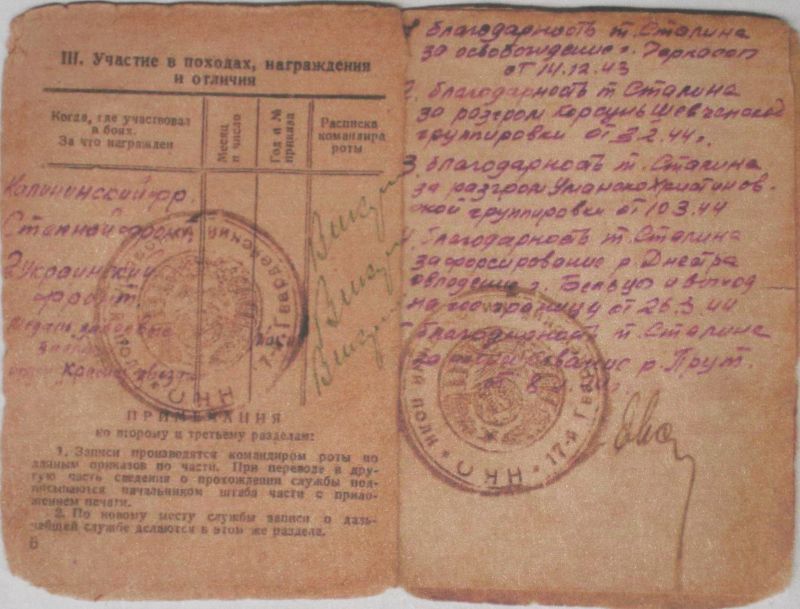 III. Участие в походах, награждения
и отличия
Когда, где участвовал
в боях.
За что награжден
Месяц
и число
Год и №
приказа
Расписка
командира
роты
Калининский фр.
Степной фронт
2 Украинский
фронт.
медаль за боевые
орден "Красная звезда"
17-й Гвардейский
НКО
ПРИМЕЧАНИЯ
ко второму и третьему разделам:
1. Записи производятся командиром роты по
данным приказов по части. При переводе в дру-
гую часть сведения о прохождении службы под-
писываются начальником штаба части с прило-
жением печати.
2. По новому месту службы записи о даль-
нейшей службе делаются в этом же разделе.
6
1 благодарность т. Сталина
за освобождение г. Черкассы
от 14.12.43
2. благодарность т. Сталина
за разгром Корсунь Шевченской
группировки от 3.2.44г.
3. благодарность т. Сталина
за разгром Уманско Христинов-
ской группировки от 10 3.44
4. благодарность т. Сталина
за форсирование р. Днестра
овладение г. Бельцы и выход
на гос границу от 26.3.44
5 благодарность т. Сталина
за р. Прут.
НКО * 17-й Гвард